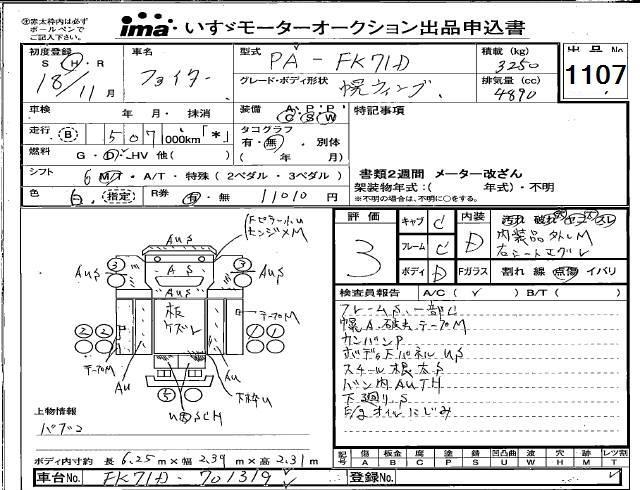 ※赤太枠内は必ず
ボールペンで
ご記入下さい。
ima いすゞモーターオークション出品申込書
初度登録 S H・R 18/11月
車名 ファイター
型式 PA-FK71D
グレード・ボディ形状 幌ウィング
積載 (kg) 3250
排気量 (cc) 4890
出品No 1107
車検 年 月・抹消
装備 A P P C S W
特記事項
走行 B 507,000km「*」
タコグラフ 有・無・別体
( 年 月)
燃料 G・D・HV 他( )
書類2週間 メーター改ざん
シフト 6 M/T・A/T・特殊 (2ペダル・3ペダル)
架装物年式:( 年式)・不明
※不明の場合は、不明に○をする。
色 白 (指定)
R券 有・無 11010 円
評価 3
キャブ C
フレーム C
ボディ D
内装 D
汚れ 破れ コゲ スレ
内装品外しM
右シートエグレ
Fガラス 割れ 線 点傷 イバリ
Fピラー小U
ヒンジXM
AUS
AS
AUS
AUS
AUS
板
ケズレ
テープM
テープM
AU
AU
下枠U
検査員報告 A/C ( ✓ ) B/T ( )
フレームS、一部C
幌A、破去、テープM
カンバンP
ボディ下パネルUS
スチール根太S
バン内AUTH
下廻りS
E/gオイルにじみ
上物情報
パブコ
ボディ内寸約 長 6.25m×幅 2.39m×高 2.31m
記号 傷 A 板金 B 腐 C 塗 P 錆 S 凹凸曲 U 波 W 穴 H 跡 M レツ割 T
車台No. FK71D-701319
登録No.